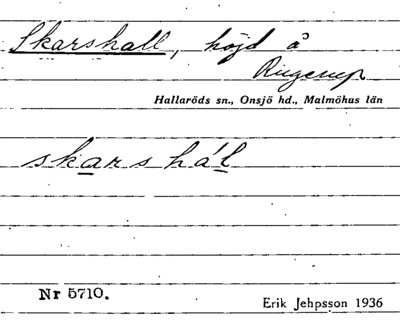 Skarshall, höjd å
Ringerup
Hallaröds sn., Onsjö hd., Malmöhus län
skarshál
Nr 5710.
Erik Jehpsson 1936